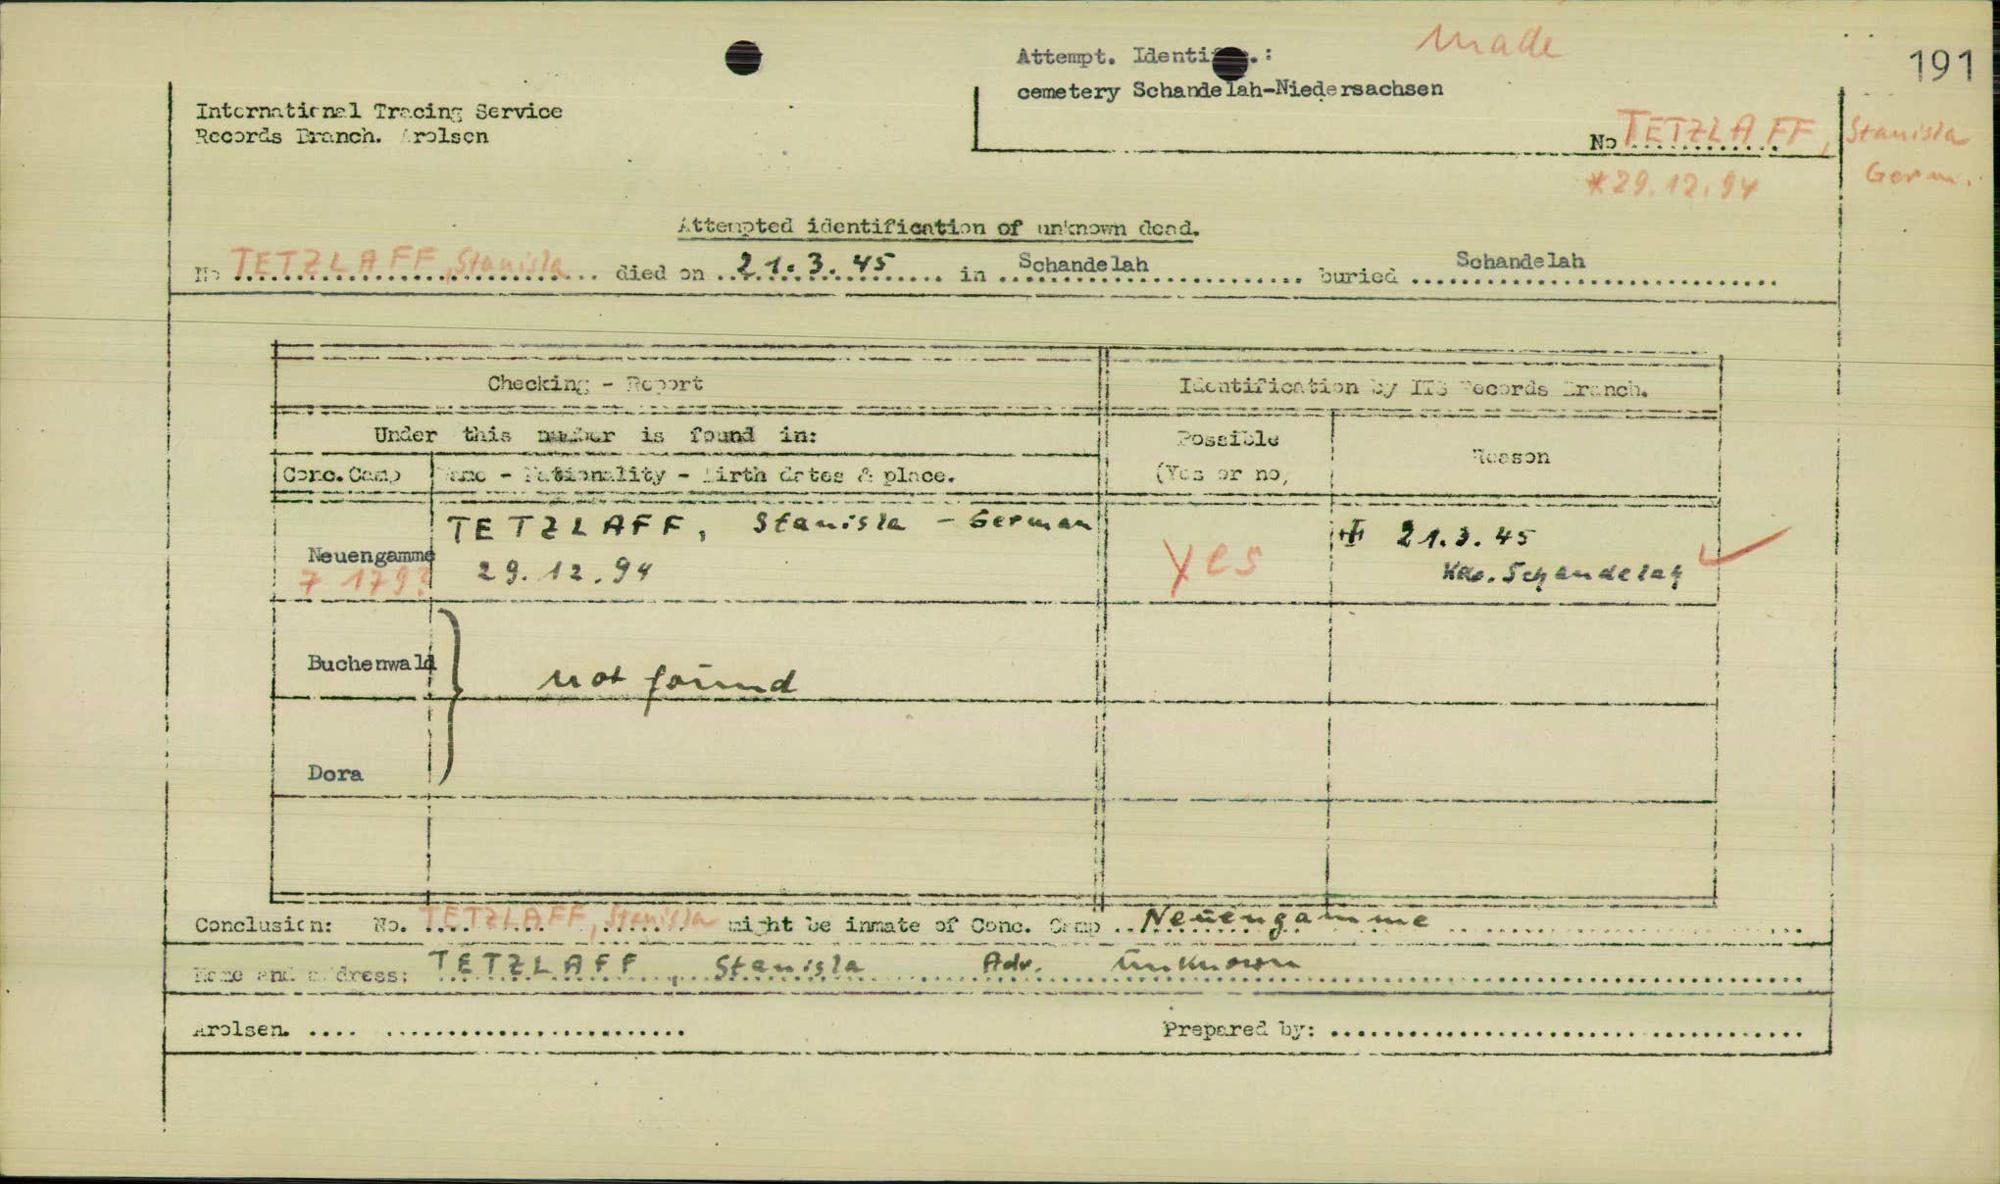 Attempt. Identif.:
made
191
cemetery Schandelah-Niedersachsen
International Tracing Service
Records Branch. Arolsen
No TETZLAFF, Stanisla
*29.12.94 Germ.
Attempted identification of unknown dead.
No TETZLAFF, Stanisla died on 21.3.45 in Schandelah buried Schandelah
Checking - Report
Identification by ITS Records Branch.
Under this number is found in:
Possible
(Yes or no)
Reason
Conc. Camp
Name - Nationality - Birth dates & place.
Neuengamme
7 179?
TETZLAFF, Stanisla - German
29.12.94
Yes
21.3.45
Kdo. Schandelah
Buchenwald
not found
Dora
Conclusion: No. TETZLAFF, Stanisla might be inmate of Conc. Camp Neuengamme
Name and address: TETZLAFF, Stanisla Adr. unknown
Arolsen.
Prepared by: